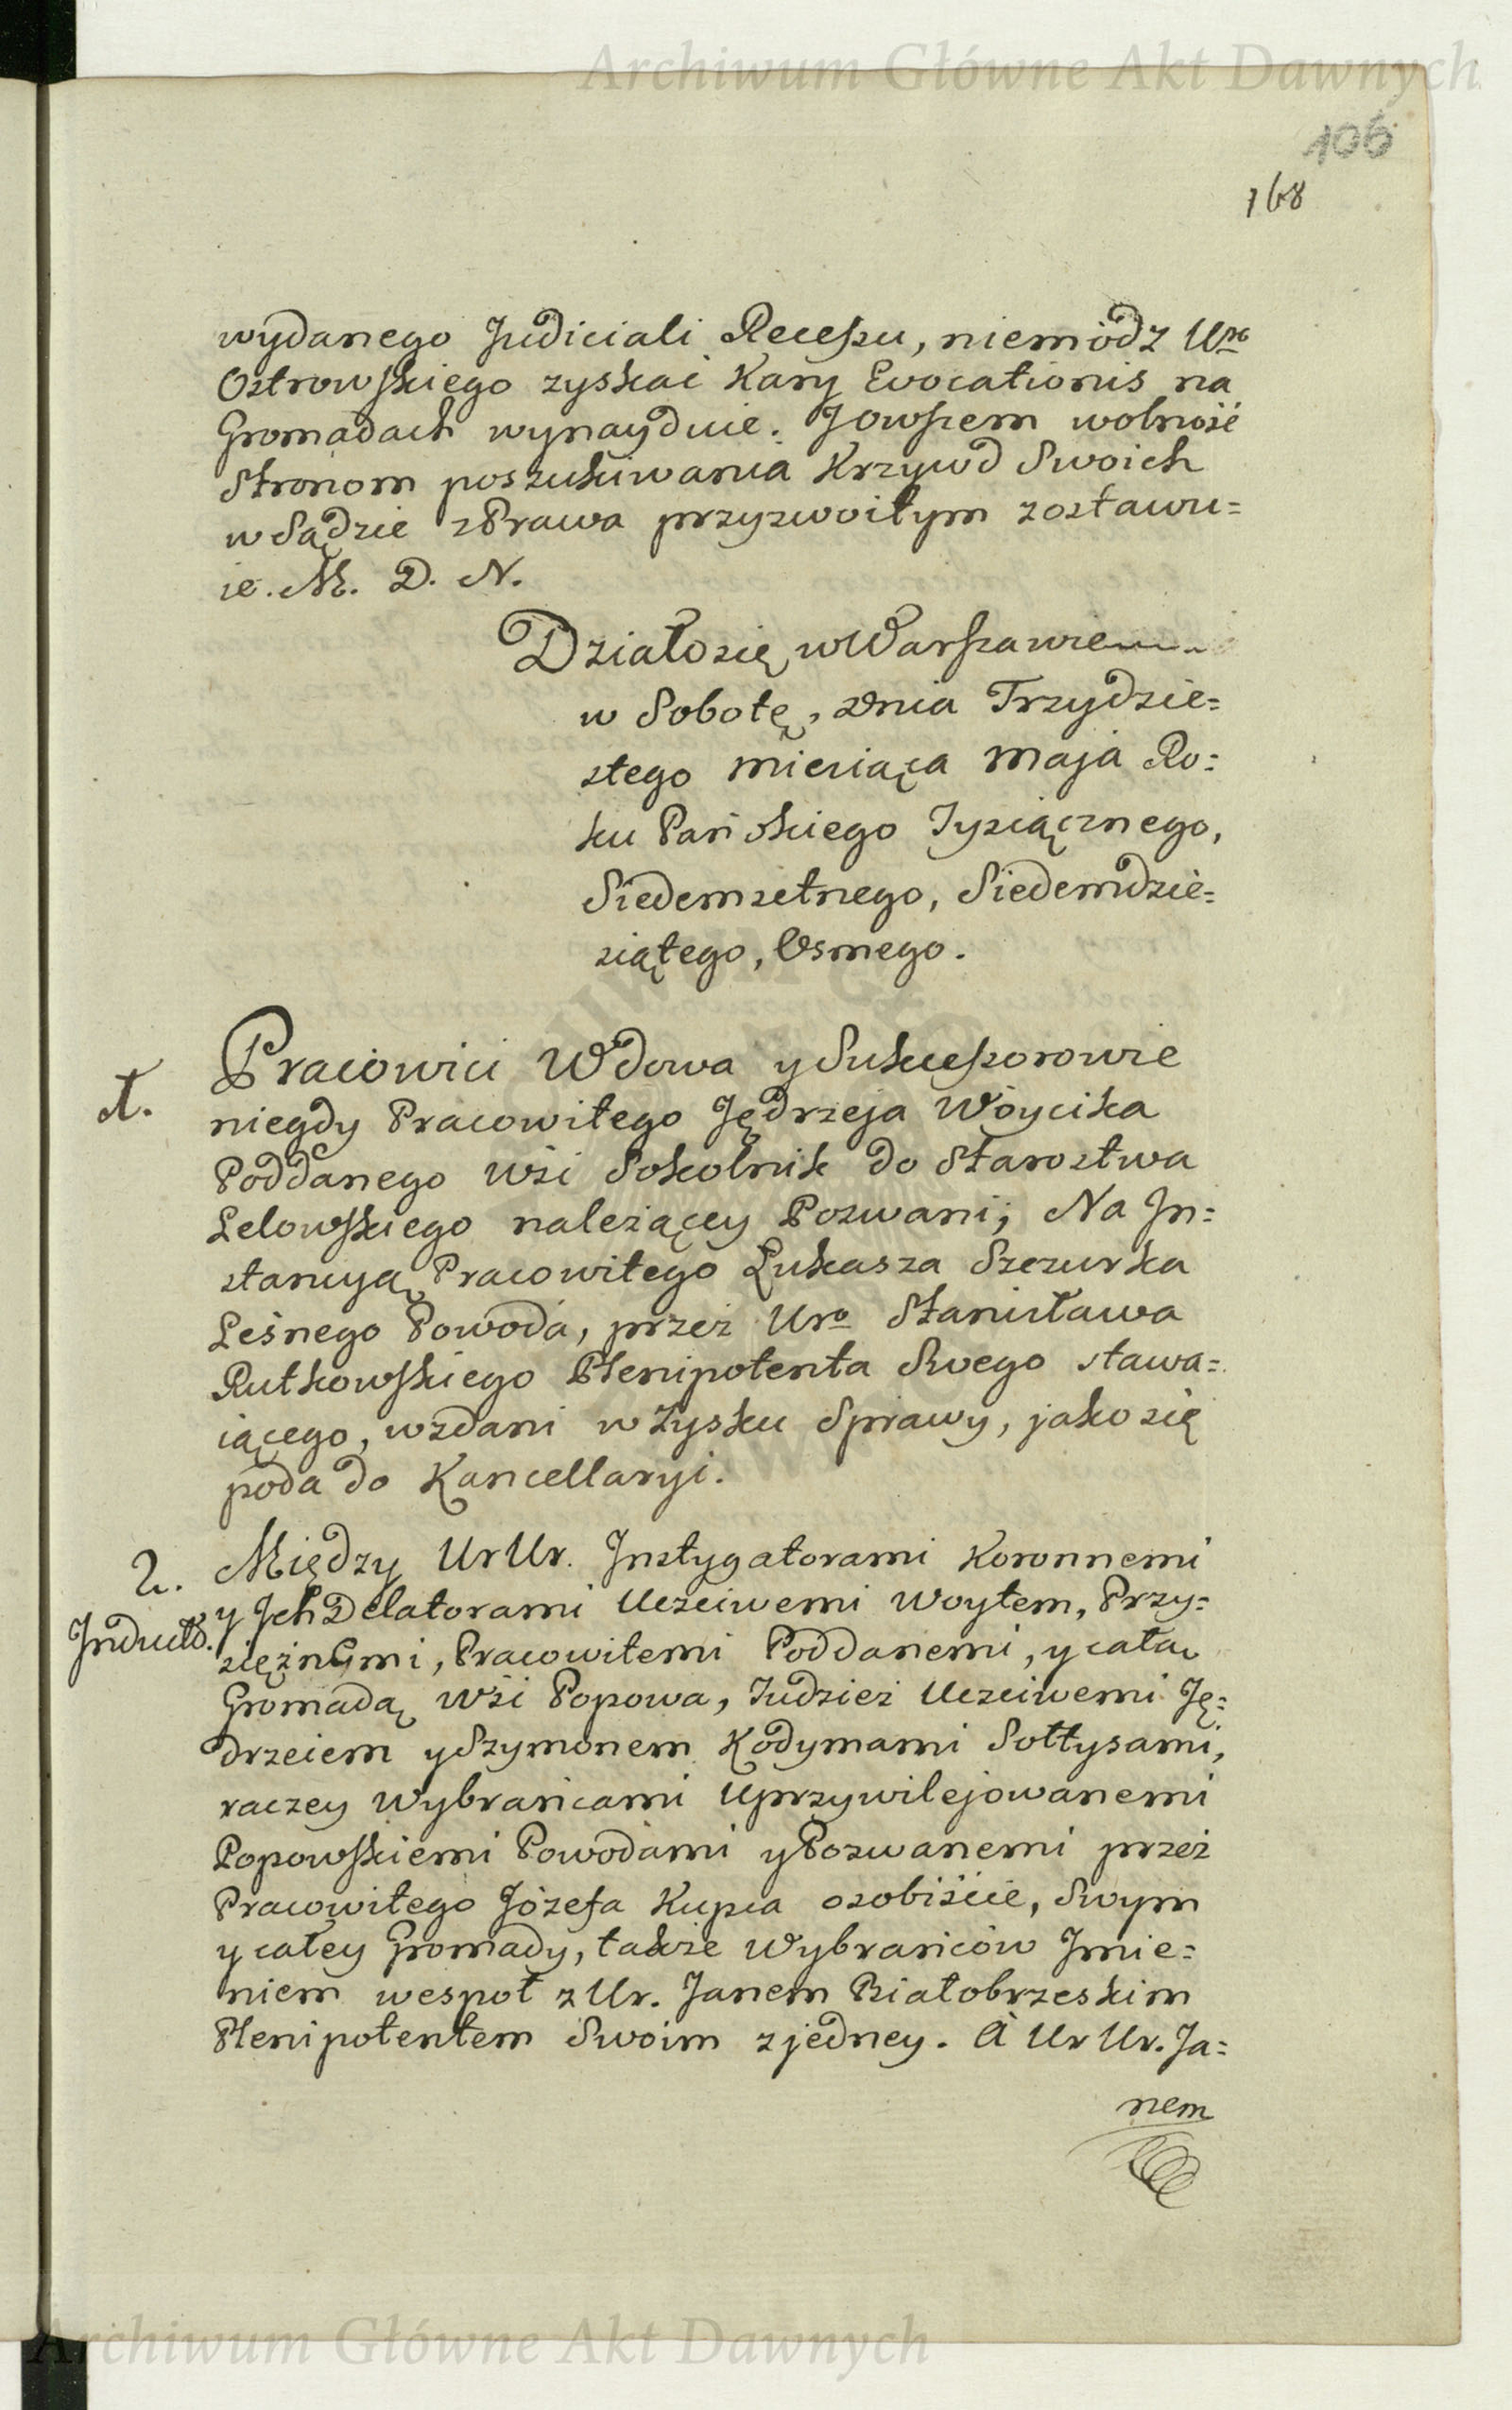 Archiwum Główne Akt Dawnych
106
168
wydanego Judiciali Recessu, niemódz Uro
Ostrowskiego zyskać Kary Evocationis na
Gromadach wynayduie. Jowszem wolność
Stronom poszukiwania Krzywd Swoich
w Sądzie z Prawa przyzwoitym zostawu=
ie. M. D. N.
Działo się w Warszawie
w Sobotę, dnia Trzydzie=
stego miesiąca Maja Ro=
ku Pańskiego Tysiącznego,
Siedemsetnego, Siedemdzie=
siątego, Osmego.
1. Pracowici Wdowa y Sukcessorowie
niegdy Pracowitego Jędrzeja Wóycika
Poddanego Wsi Sokolnik do Starostwa
Lelowskiego należącey Pozwani; Na In=
stancyą Pracowitego Łukasza Szczurka
Leśnego Powoda, przez Uro Stanisława
Rutkowskiego Plenipotenta Swego stawa=
iącego, wzdani w Zysku Sprawy, jako się
poda do Kancellaryi.
2. Między Ur Ur. Instygatorami Koronnemi
Inducta. y Jch Delatorami Uczciwemi Woytem, Przy=
siężnymi, Pracowitemi Poddanemi, y całą
Gromadą Wsi Popowa, Tudzież Uczciwemi Ję=
drzeiem y Szymonem Kodymami Sołtysami,
raczey Wybrańcami Uprzywilejowanemi
Popowskiemi Powodami y Pozwanemi przez
Pracowitego Józefa Kupca osobiście, Swym
y całey Gromady, także Wybrańców Jmie=
niem wespoł z Ur. Janem Białobrzeskim
Plenipotentem Swoim z jedney. A Ur Ur. Ja=
nem
Archiwum Główne Akt Dawnych